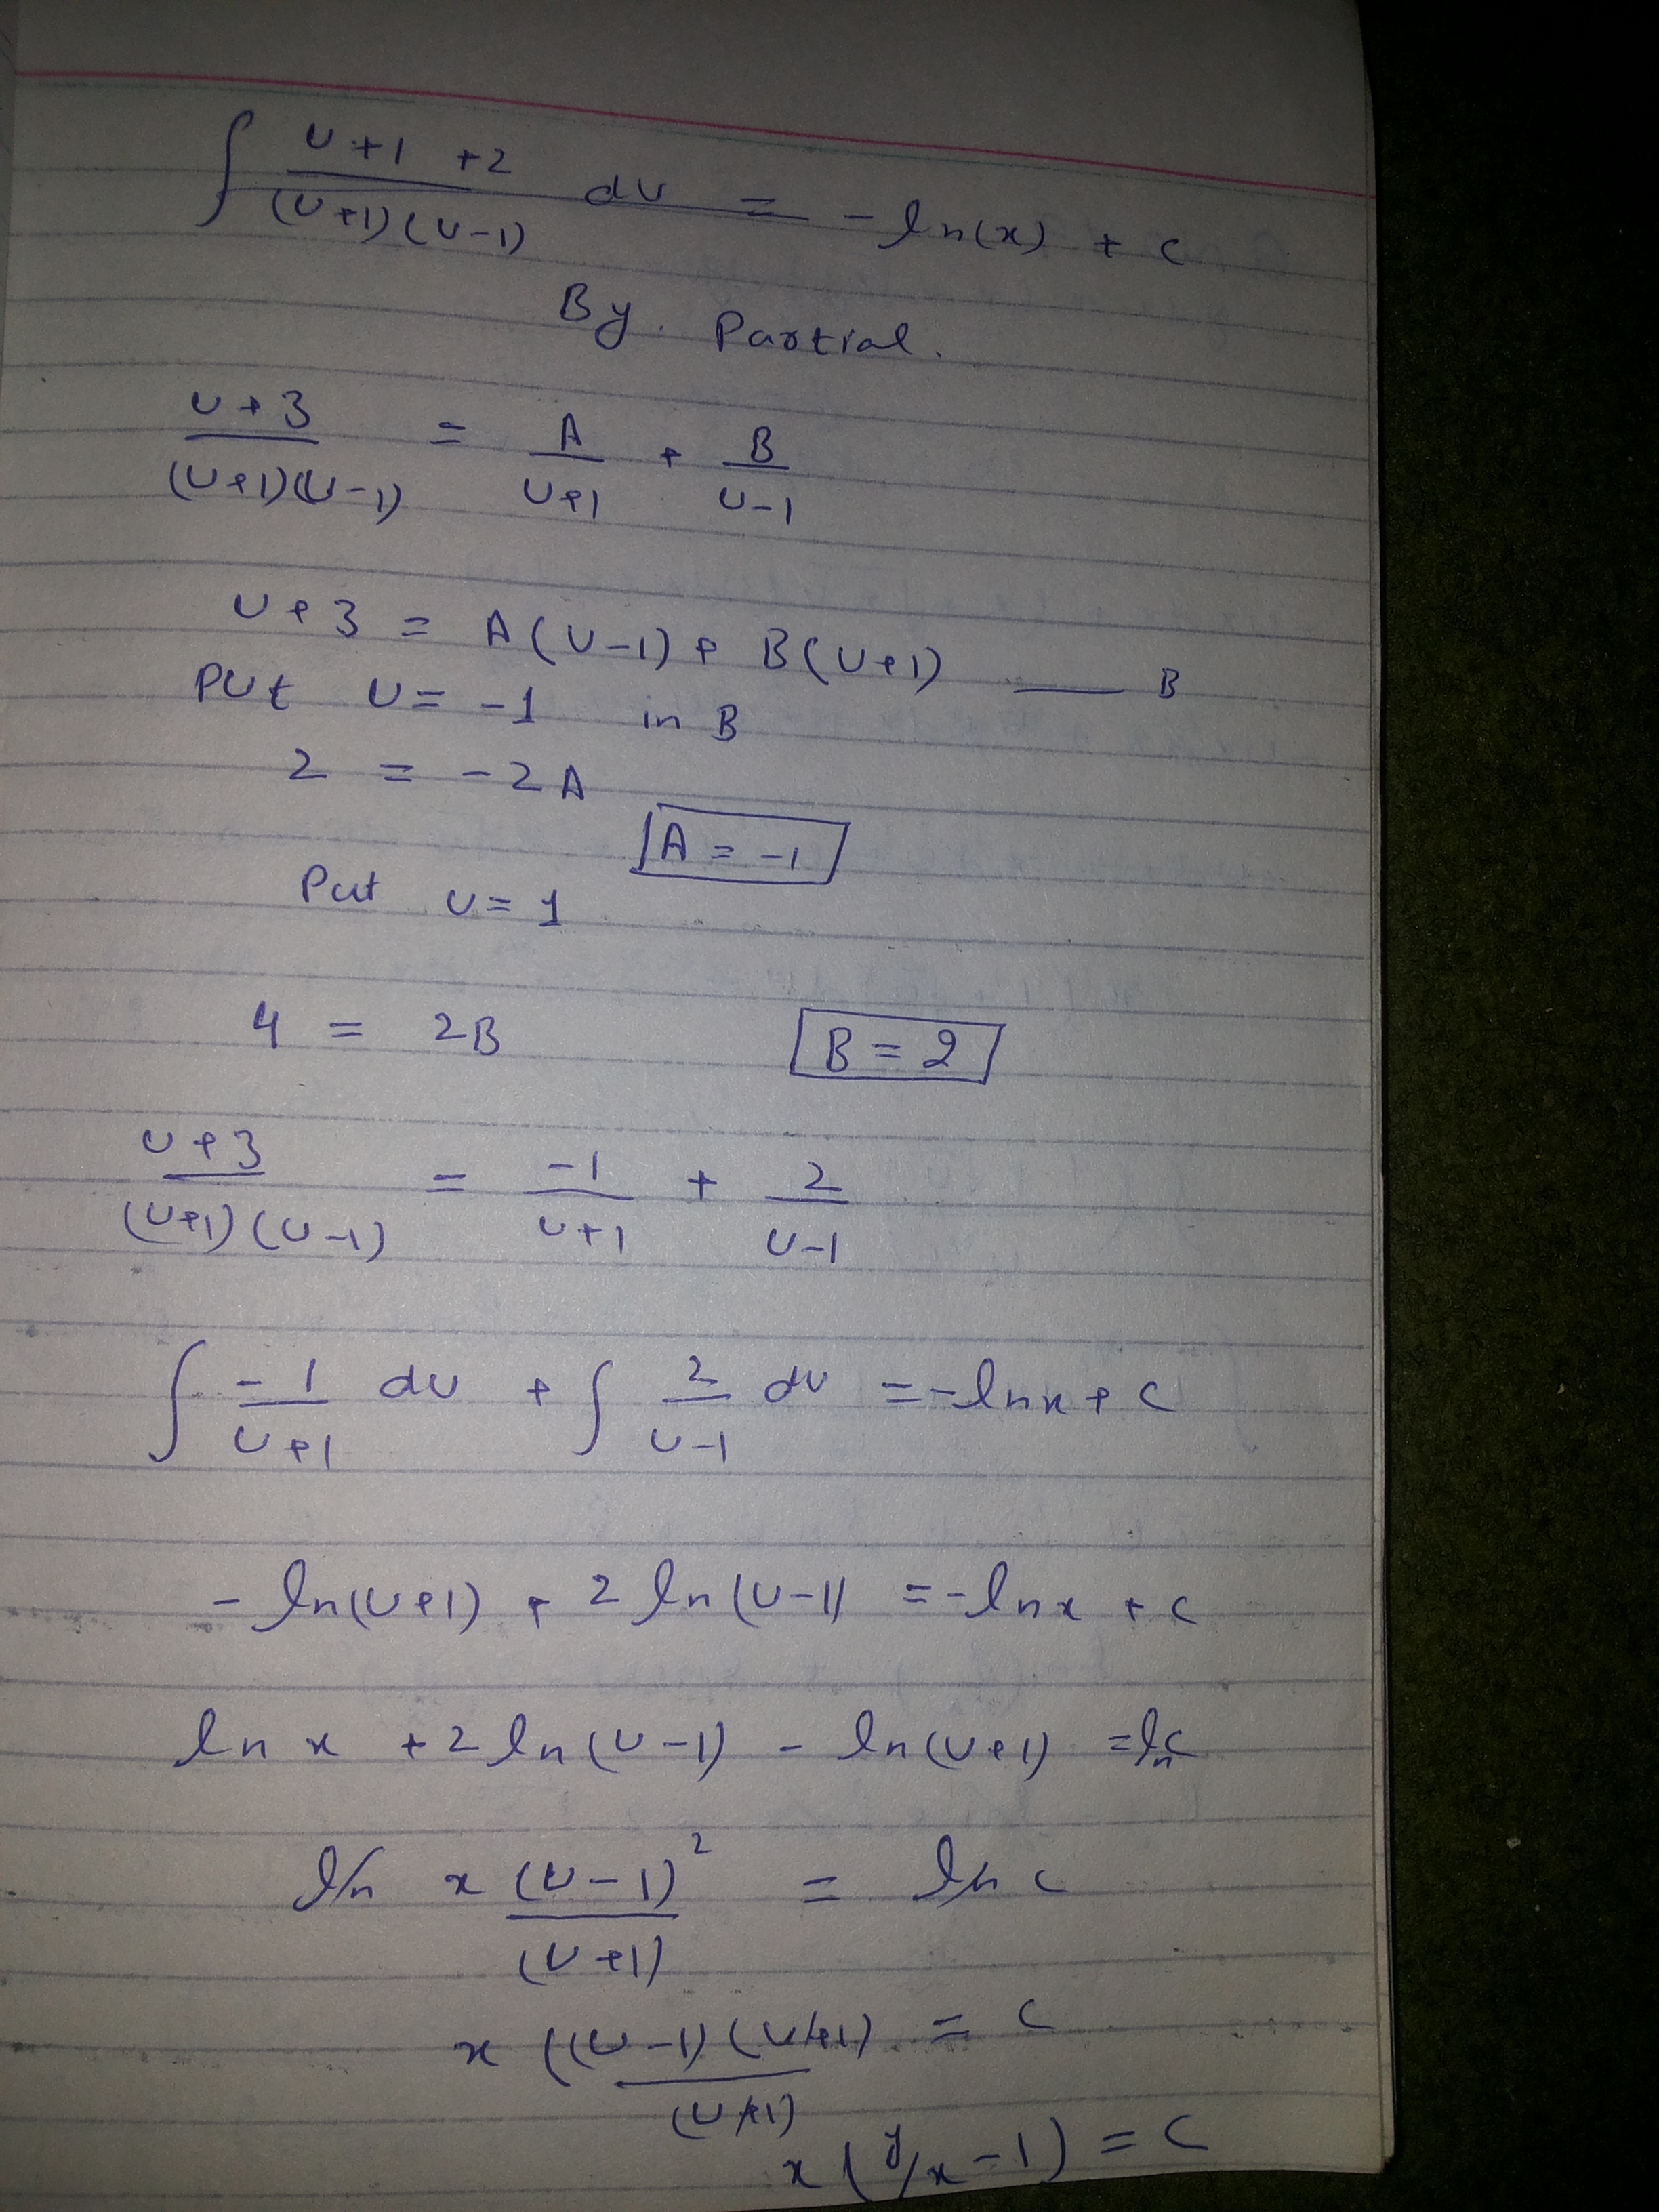 ∫ (U+1 +2)/((U+1)(U-1)) dU = -ln(x) + c
By. Partial.
(U+3)/((U+1)(U-1)) = A/(U+1) + B/(U-1)
U+3 = A(U-1) + B(U+1) — B
Put U = -1 in B
2 = -2A
A = -1
Put U = 1
4 = 2B B = 2
(U+3)/((U+1)(U-1)) = -1/(U+1) + 2/(U-1)
∫ -1/(U+1) dU + ∫ 2/(U-1) dU = -lnx + c
-ln(U+1) + 2 ln(U-1) = -lnx + c
ln x + 2 ln(U-1) - ln(U+1) = lnc
ln x (U-1)²/(U+1) = ln c
x ((U-1)(U+1)/(U+1) = c
x (y/x - 1) = c